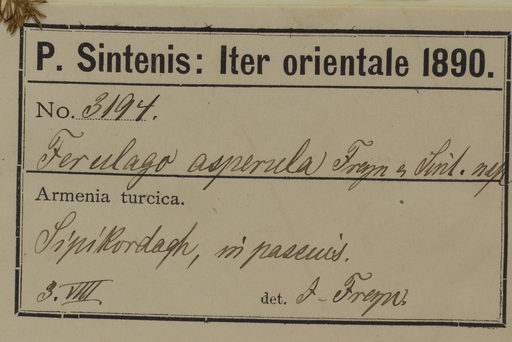 P. Sintenis: Iter orientale 1890.
No. 3194.
Ferulago asperula Freyn & Sint. nsp
Armenia turcica.
Sipikordagh, in pascuis.
3. VIII
det. J. Freyn.